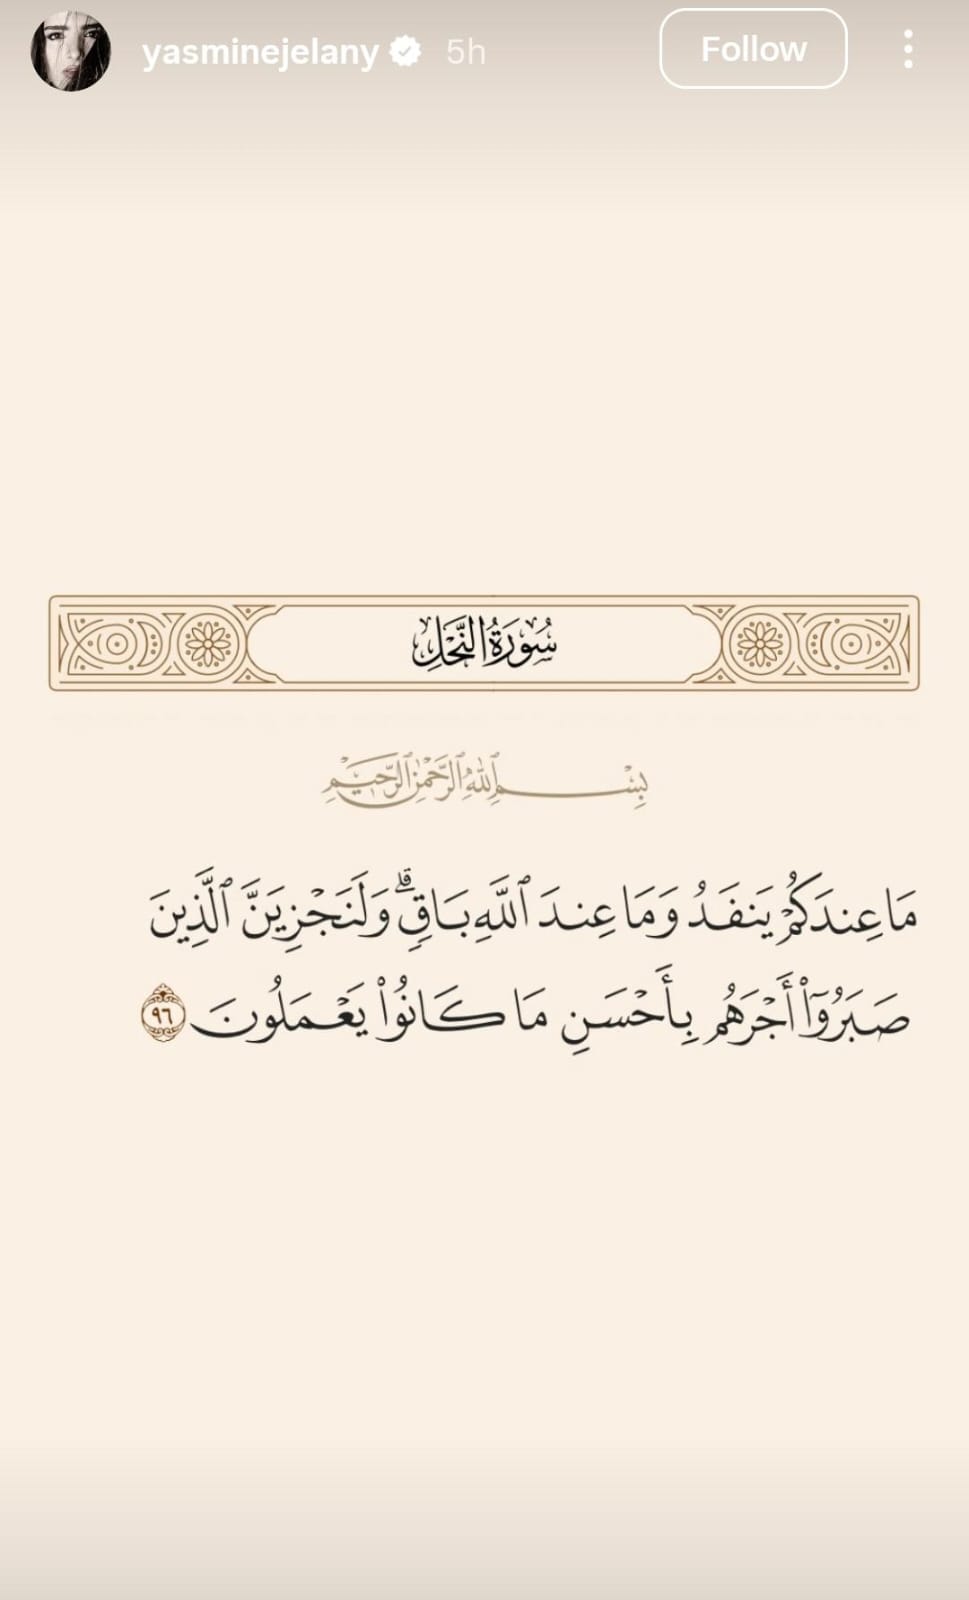 yasminejelany 5h Follow
سُورَةُ النَّحْلِ
بِسْمِ ٱللَّهِ ٱلرَّحْمَٰنِ ٱلرَّحِيمِ
مَا عِندَكُمْ يَنفَدُ وَمَا عِندَ ٱللَّهِ بَاقٍۗ وَلَنَجْزِيَنَّ ٱلَّذِينَ
صَبَرُوٓا۟ أَجْرَهُم بِأَحْسَنِ مَا كَانُوا۟ يَعْمَلُونَ ٩٦